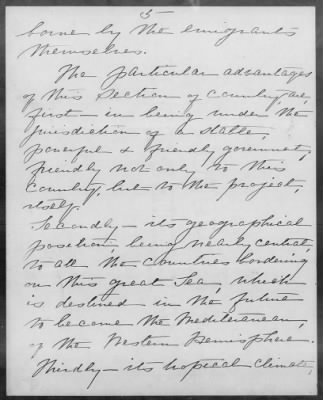 5
borne by the emigrants
themselves.
The particular advantages
of this section of country, are,
first - in being under the
jurisdiction of a stable,
powerful & friendly government,
friendly not only to this
country, but to the project,
itself.
Secondly - its geographical
position being nearly central,
to all the countries bordering
on this great Sea, which
is destined in the future
to become the Mediteranean,
of the Western Hemisphere.
Thirdly - its tropical climate,